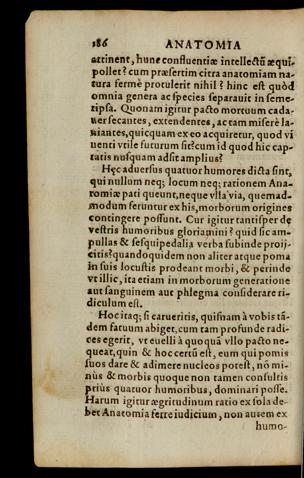 186 ANATOMIA
attinent, hunc confluentiæ intellectũ æqui-
pollet? cum præsertim citra anatomiam na
tura fermè protulerit nihil? hinc est quòd
omnia genera ac species separauit in seme-
tipsa. Quonam igitur pacto mortuum cada-
uer secantes, extendentes, ac tam miserè la-
niantes, quicquam ex eo acquiretur, quod vi
uenti vtile futurum sit? cum id quod hic cap-
tatis nusquam adsit amplius?
Hęc aduersus quatuor humores dicta sint,
qui nullum neq; locum neq; rationem Ana-
tomiæ pati queunt, neque vlla via, quemad-
modum feruntur ex his, morborum origines
contingere possunt. Cur igitur tantisper de
vestris humoribus gloriamini? quid sic am-
pullas & sesquipedalia verba subinde proij-
citis? quandoquidem non aliter atque poma
in suis locustis prodeant morbi, & perinde
vt illic, ita etiam in morborum generatione
aut sanguinem aut phlegma considerare ri-
diculum est.
Hoc itaq; si caueritis, quisnam à vobis tã-
dem fatuum abiget, cum tam profunde radi-
ces egerit, vt euelli à quoquã vllo pacto ne-
queat, quin & hoc certũ est, eum qui pomis
suos dare & adimere nucleos potest, nõ mi-
nùs & morbis quoque non tamen consultis
priùs quatuor humoribus, dominari posse.
Harum igitur ægritudinum ratio ex sola de-
bet Anatomia ferre iudicium, non autem ex
humo-